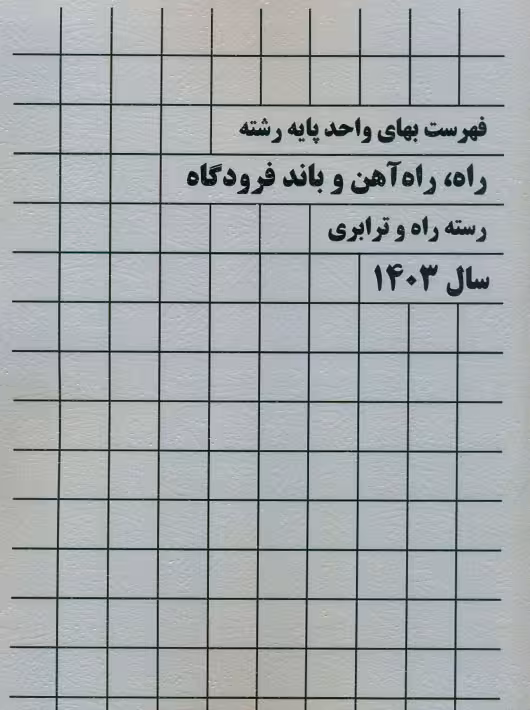 فهرست بهای واحد پایه رشته
راه، راه‌آهن و باند فرودگاه
رسته راه و ترابری
سال ۱۴۰۳